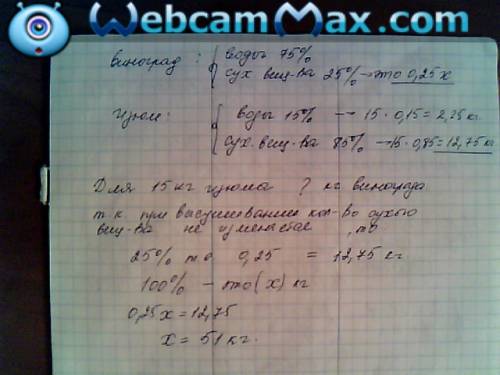 WebcamMax.com
виноград: воды 75%
сух. вещ-ва 25% → это 0,25x
изюм: воды 15% → 15 · 0,15 = 2,25 кг
сух. вещ-ва 85% → 15 · 0,85 = 12,75 кг
Для 15 кг изюма ? кг винограда
т.к. при высушивании кол-во сухого
вещ-ва не изменяется, то
25% это 0,25 = 12,75 кг
100% – это (x) кг
0,25x = 12,75
x = 51 кг.